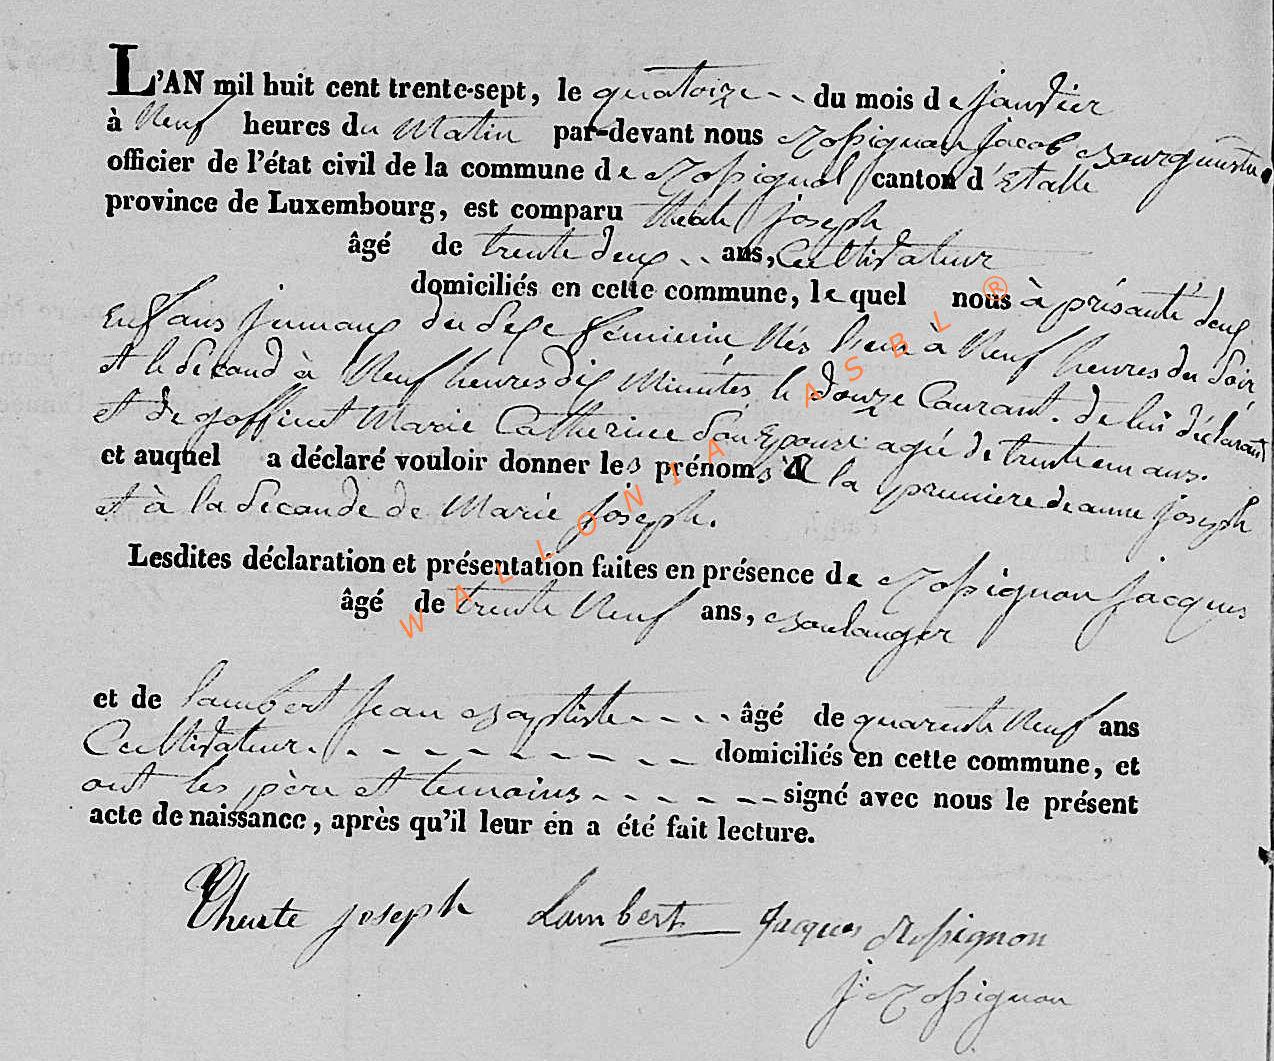 L'AN mil huit cent trente-sept, le quatorze -- du mois de janvier
à Neuf heures du Matin par-devant nous Rossignon Jacob Bourguemtre
officier de l'état civil de la commune de Rossignol canton d'Etalle
province de Luxembourg, est comparu Joseph
âgé de trente deux -- ans, Cultivateur
domiciliés en cette commune, lequel nous à présanté deux
Enfans jumaux du Sexe féminin Nés hier à Neuf heures du Soir
et le Secand à Neuf heures dix Minutes, le douze Courant. de lui déclarant
et de goffinet Marie Catherine Son Epouse agée de trente un ans.
et auquel a déclaré vouloir donner les prénoms à la premiere de anne Joseph
et à la Secande de Marie Joseph.
Lesdites déclaration et présentation faites en présence de Rossignon Jacques
âgé de trente Neuf ans, Boulanger
et de Lambert Jean Baptiste - - - - âgé de quarente Neuf ans
Cultivateur. - - - - - - - - domiciliés en cette commune, et
ont les père et temoins - - - - - - signé avec nous le présent
acte de naissance, après qu'il leur en a été fait lecture.
Joseph Lambert Jacques Rossignon
J: Rossignon
WALLONIA ASBL ®